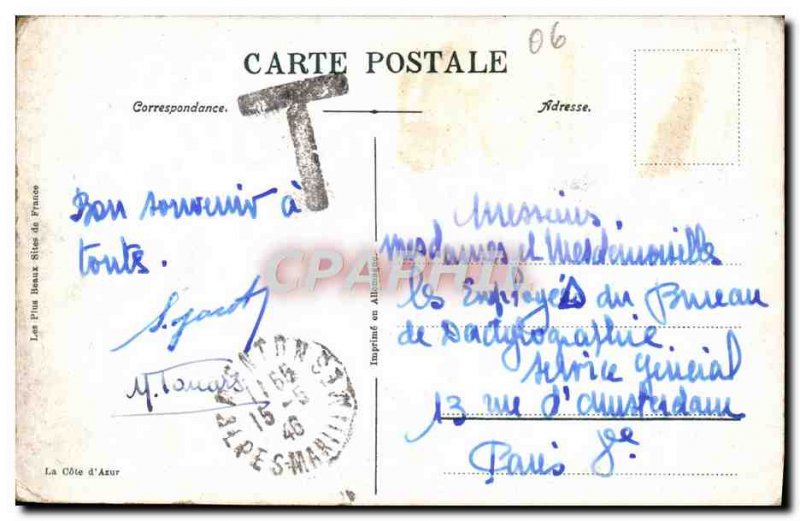 06
CARTE POSTALE
Correspondance.
Adresse.
T
Bon souvenir à
touts.
Messieurs
Mesdames et Mesdemoiselles
les Employés du Bureau
de Dactylographie
Service Général
13 rue d'Amsterdam
Paris 8e
MENTON ST
15 -5
46
ALPES-MARIT
CPARHIL
Les Plus Beaux Sites de France
Imprimé en Allemagne.
La Côte d'Azur